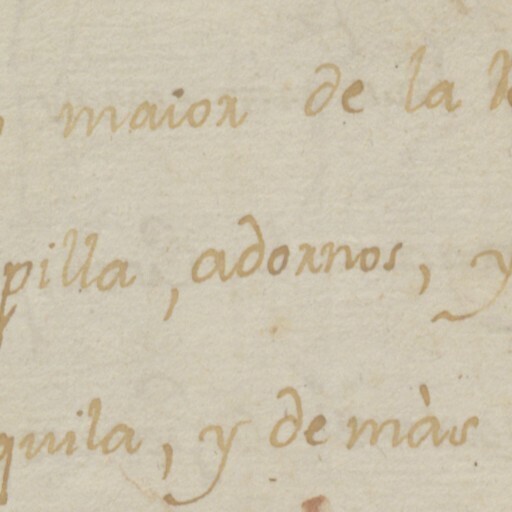 maior de la
pilla, adornos, y
quila, y demàs